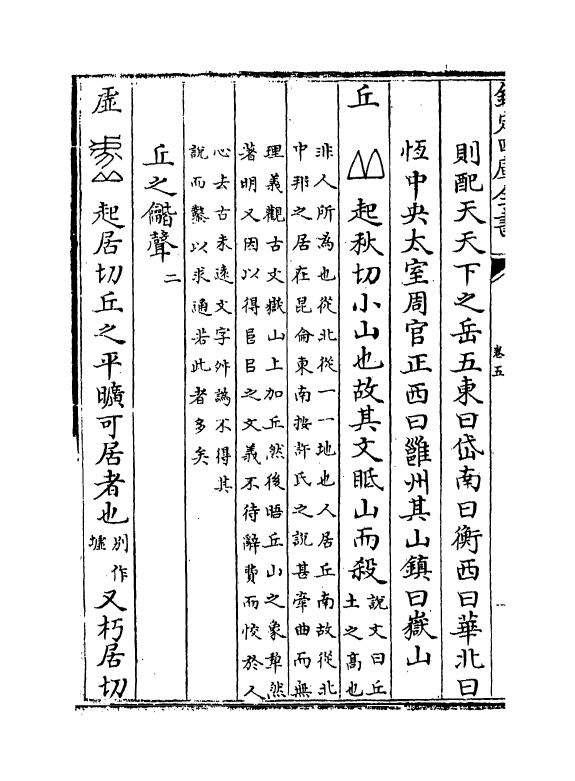 欽定四庫全書
卷五
則配天天下之岳五東曰岱南曰衡西曰華北曰
恆中央太室周官正西曰雝州其山鎮曰嶽山
丘 起秋切小山也故其文眡山而殺說文曰丘
土之高也
非人所為也從北從一一地也人居丘南故從北
中邦之居在昆侖東南按許氏之說甚牽曲而無
理義觀古文嶽山上加丘然後晤丘山之象犖然
著明又因以得之文義不待辭費而恔於人
心去古未遠文字舛譌不得其
說而鑿以求通若此者多矣
丘之龤聲二
虛 起居切丘之平曠可居者也別作墟又朽居切